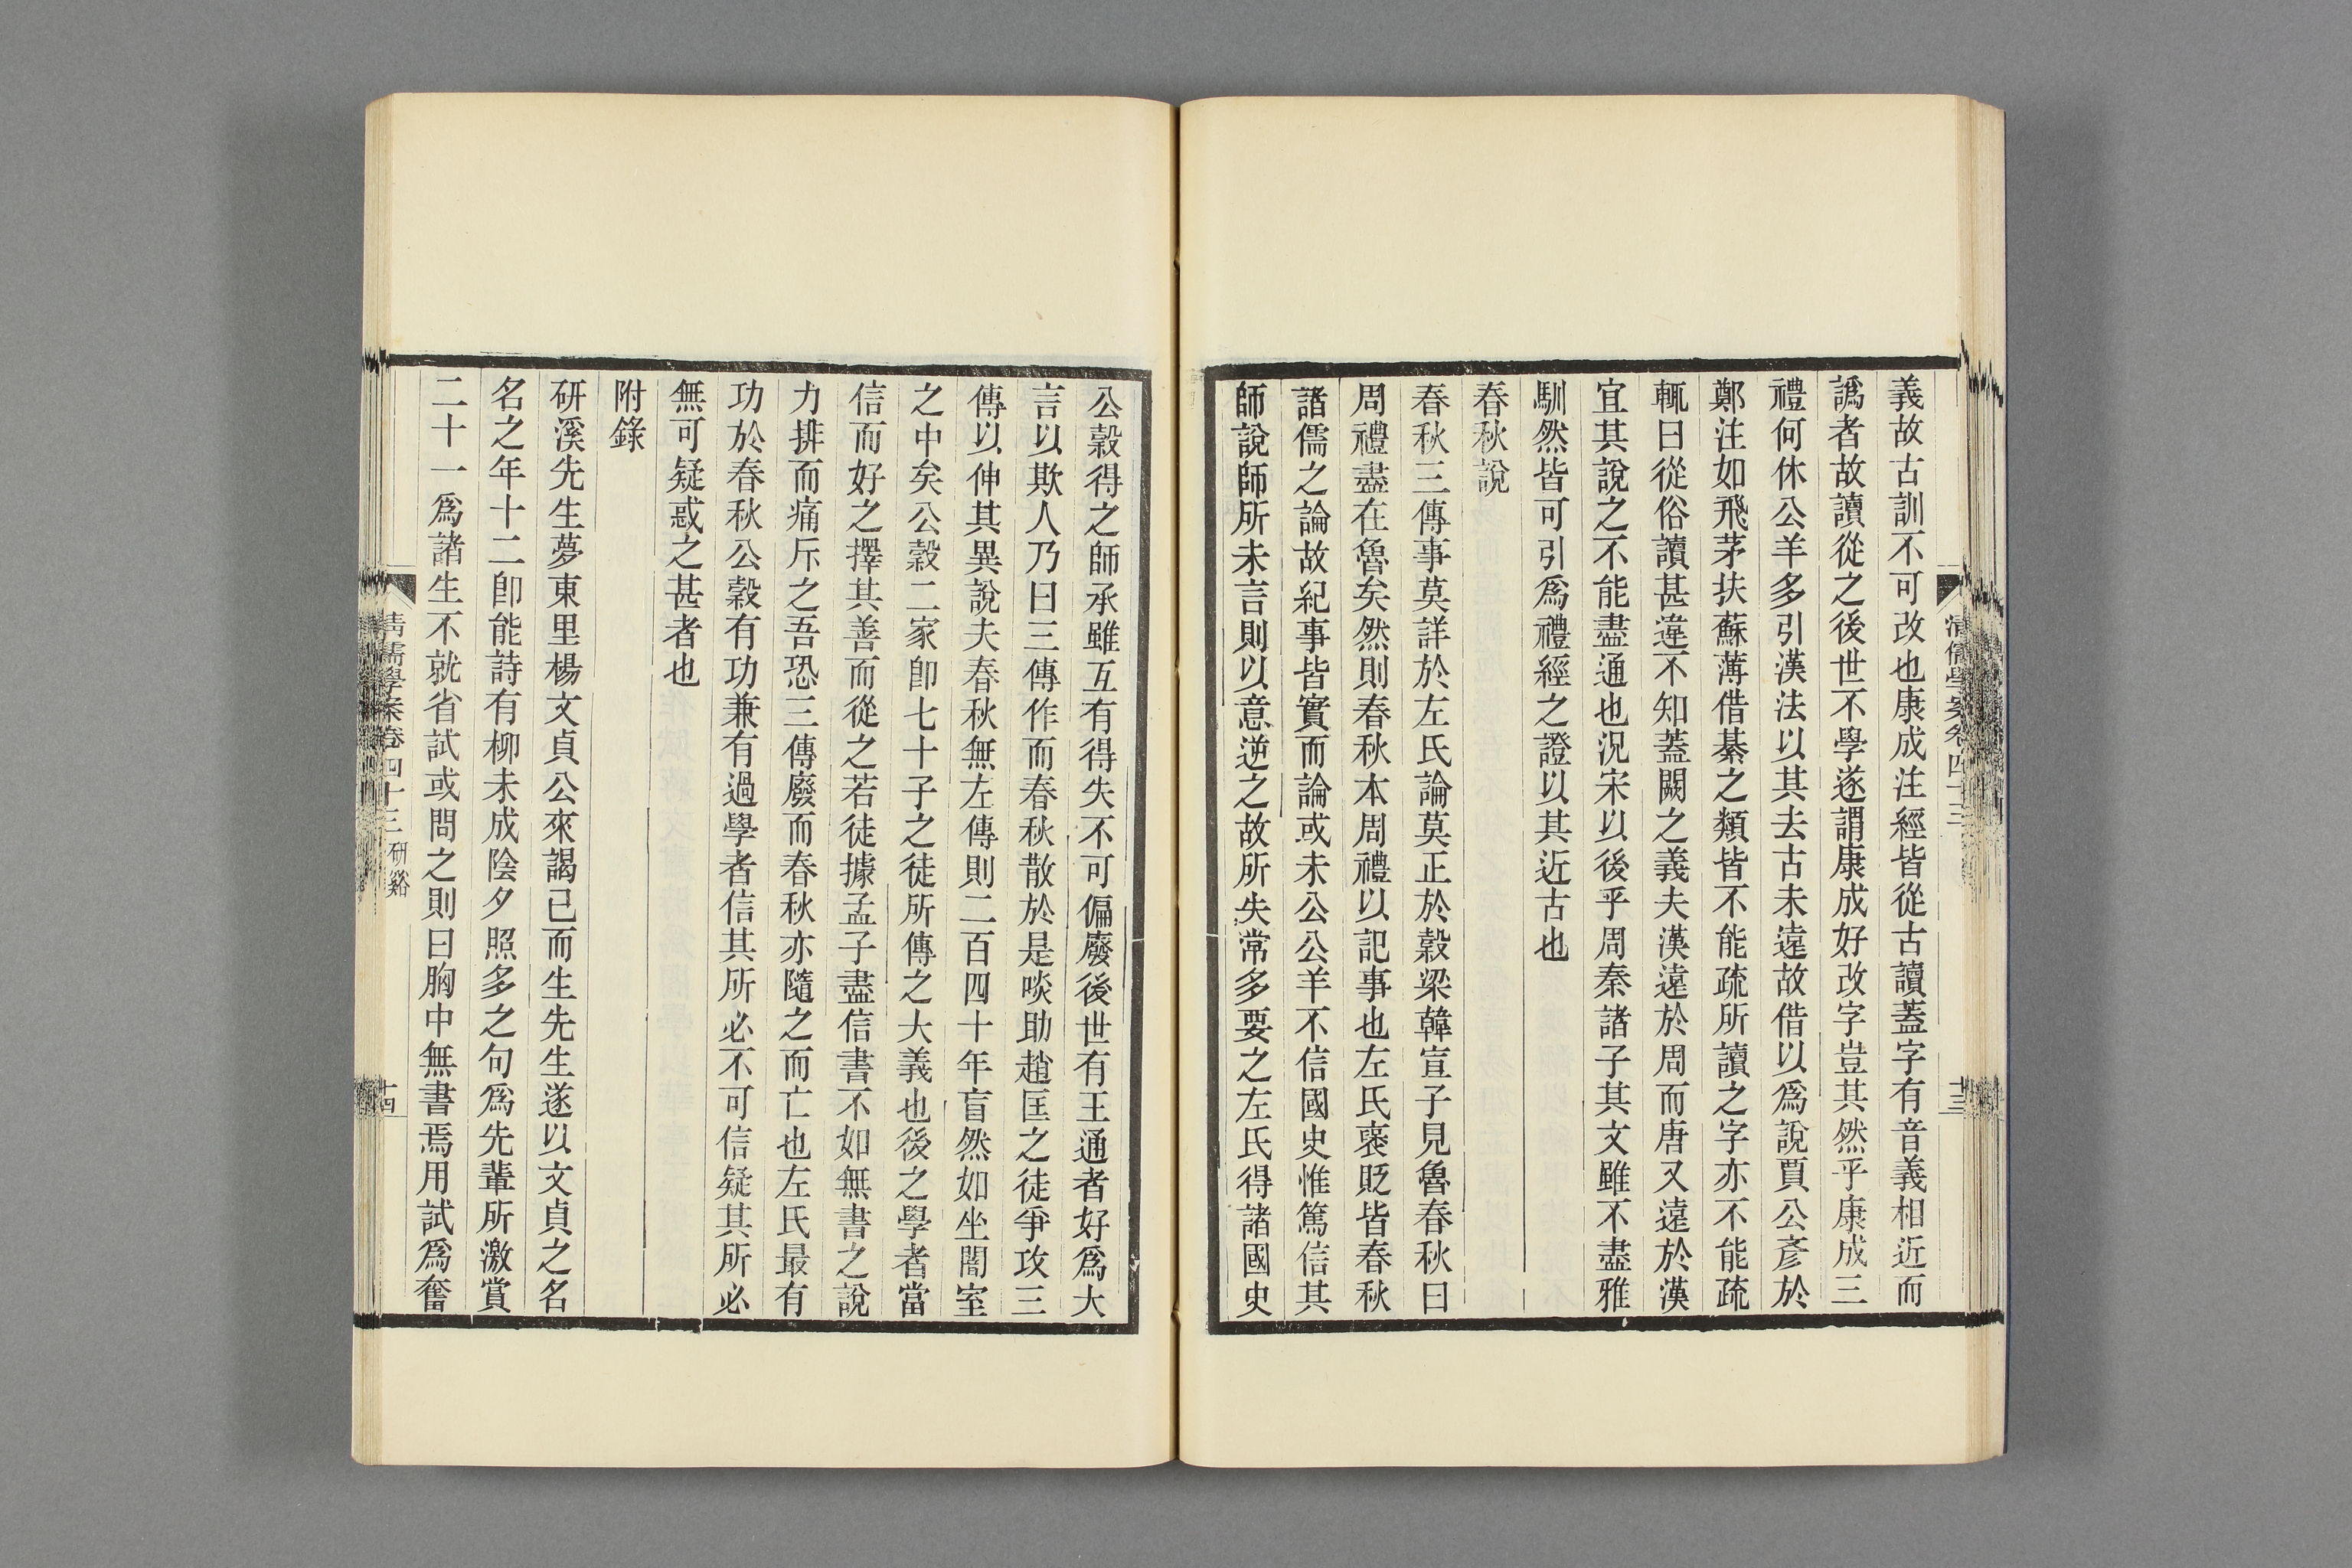 義故古訓不可改也康成注經皆從古讀蓋字有音義相近而
譌者故讀從之後世不學遂謂康成好改字豈其然乎康成三
禮何休公羊多引漢法以其去古未遠故借以爲說賈公彥於
鄭注如飛茅扶蘇薄借綦之類皆不能疏所讀之字亦不能疏
輒曰從俗讀甚違不知蓋闕之義夫漢遠於周而唐又遠於漢
宜其說之不能盡通也況宋以後乎周秦諸子其文雖不盡雅
馴然皆可引爲禮經之證以其近古也
春秋說
春秋三傳事莫詳於左氏論莫正於穀梁韓宣子見魯春秋曰
周禮盡在魯矣然則春秋本周禮以記事也左氏褒貶皆春秋
諸儒之論故紀事皆實而論或未公公羊不信國史惟篤信其
師說師所未言則以意逆之故所失常多要之左氏得諸國史
公穀得之師承雖互有得失不可偏廢後世有王通者好爲大
言以欺人乃曰三傳作而春秋散於是啖助趙匡之徒爭攻三
傳以伸其異說夫春秋無左傳則二百四十年盲然如坐闇室
之中矣公穀二家卽七十子之徒所傳之大義也後之學者當
信而好之擇其善而從之若徒據孟子盡信書不如無書之說
力排而痛斥之吾恐三傳廢而春秋亦隨之而亡也左氏最有
功於春秋公穀有功兼有過學者信其所必不可信疑其所必
無可疑惑之甚者也
附錄
研溪先生夢東里楊文貞公來謁已而生先生遂以文貞之名
名之年十二卽能詩有柳未成陰夕照多之句爲先輩所激賞
二十一爲諸生不就省試或問之則曰胸中無書焉用試爲奮
清儒學案卷四十三 研谿
十四